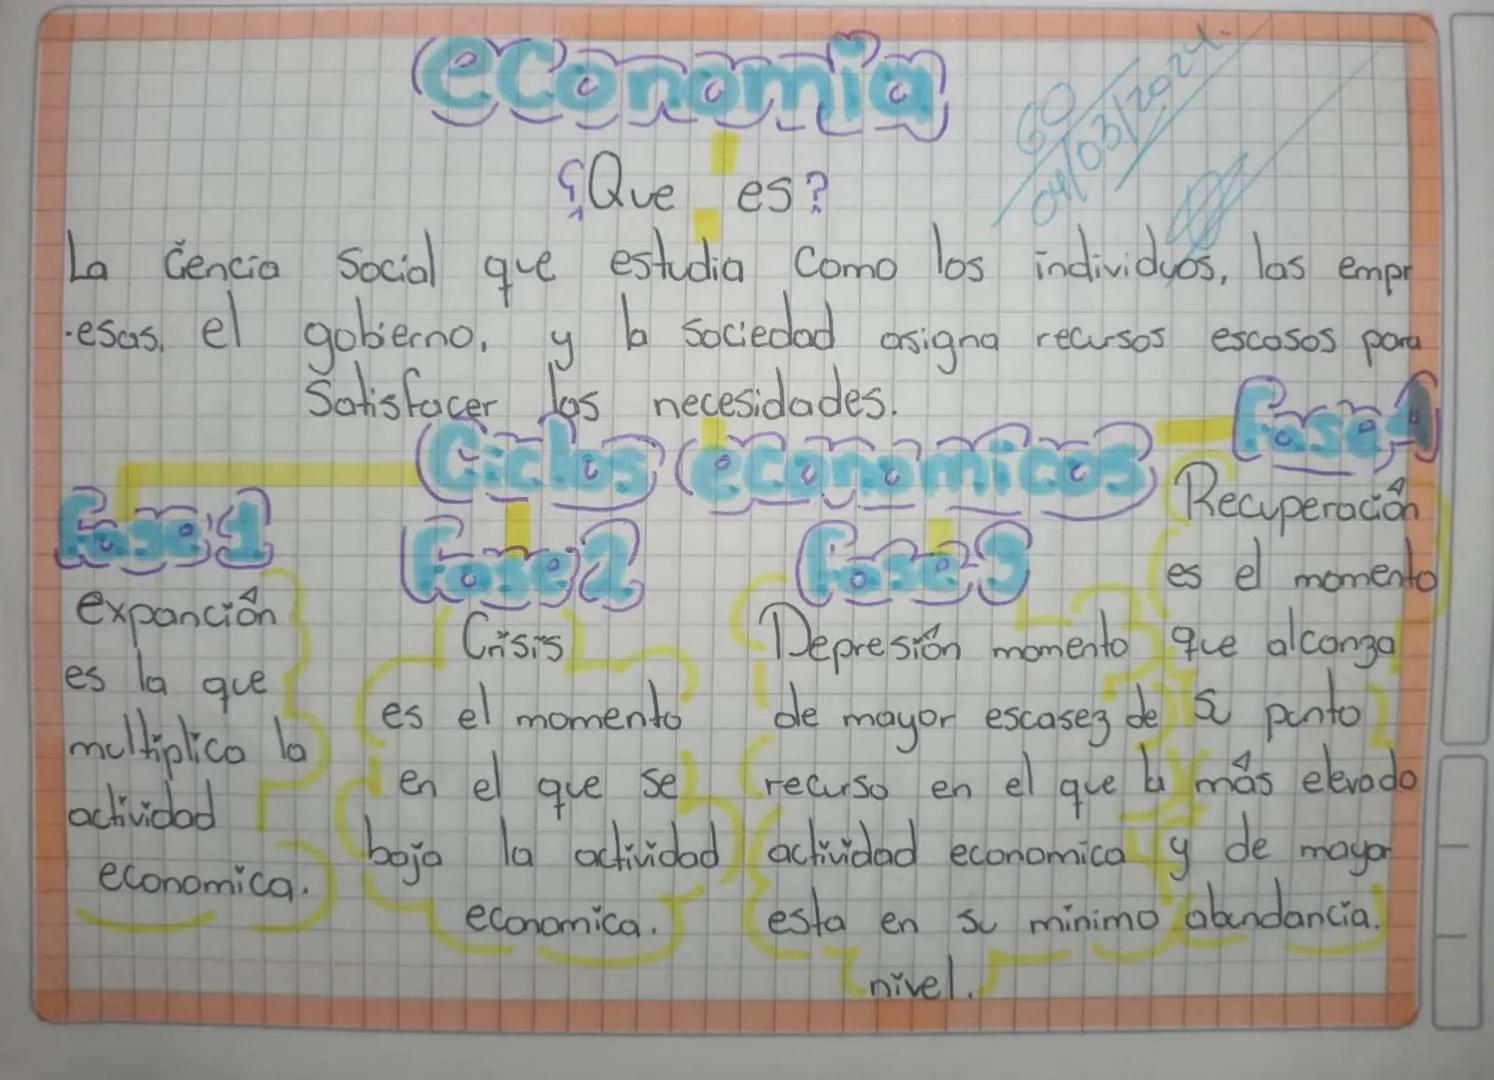 economia
60
04/03/2024.
¿Que es?
La Cencia Social que estudia Como los individuos, las empr
-esas, el gobierno, y la sociedad asigna recursos escasos para
Satisfacer las necesidades.
Ciclos economicos
fase 1
expanción
es la que
multiplica la
actividad
economica.
fase 2
Crisis
es el momento
en el que se
baja la actividad
economica.
fase 3
Depresión momento
de mayor escasez de
recurso en el que la
actividad economica
esta en su minimo
nivel.
fase 4
Recuperación
es el momento
que alcanza
su punto
más elevado
y de mayor
abundancia.